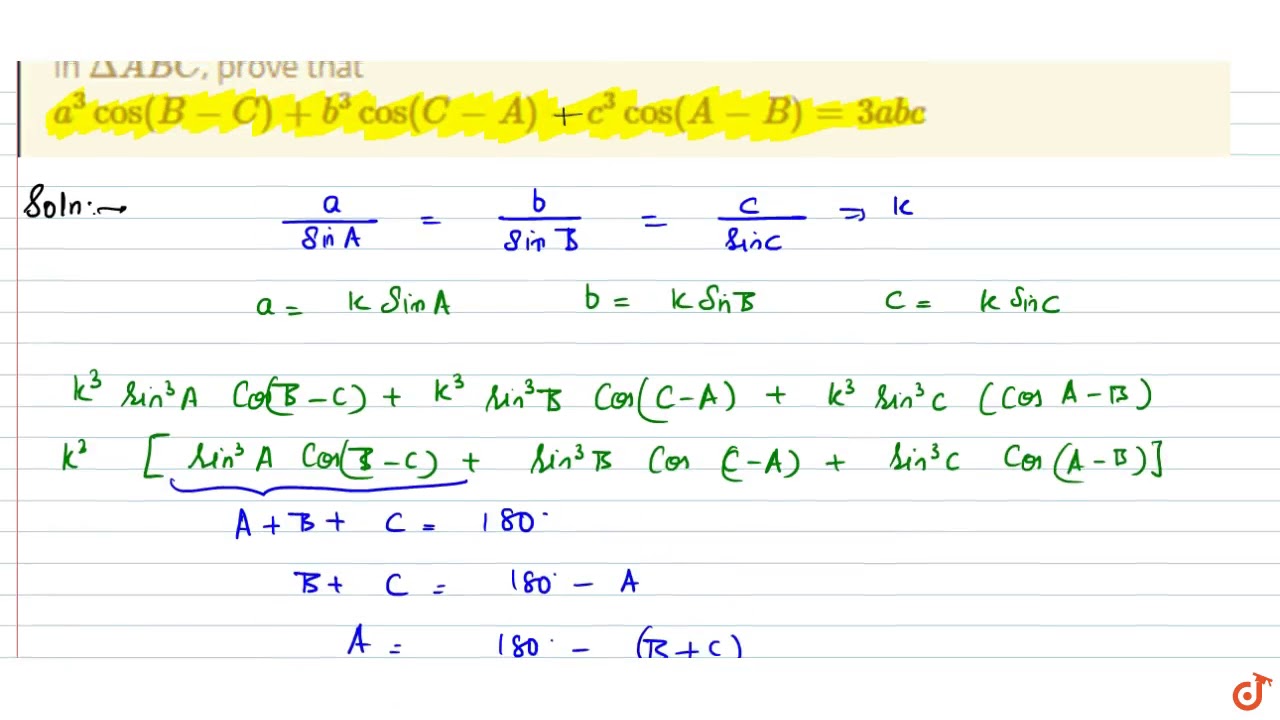 In ΔABC, prove that
a³ cos(B − C) + b³ cos(C − A) + c³ cos(A − B) = 3abc
Soln:→ a/sin A = b/sin B = c/sin C ⇒ k
a = k sin A b = k sin B c = k sin C
k³ sin³A Cos(B − C) + k³ sin³B Cos(C − A) + k³ sin³C (Cos A − B)
k³ [ sin³A Cos(B − C) + sin³B Cos (C − A) + sin³C Cos (A − B) ]
A + B + C = 180°
B + C = 180° − A
A = 180° − (B + C)